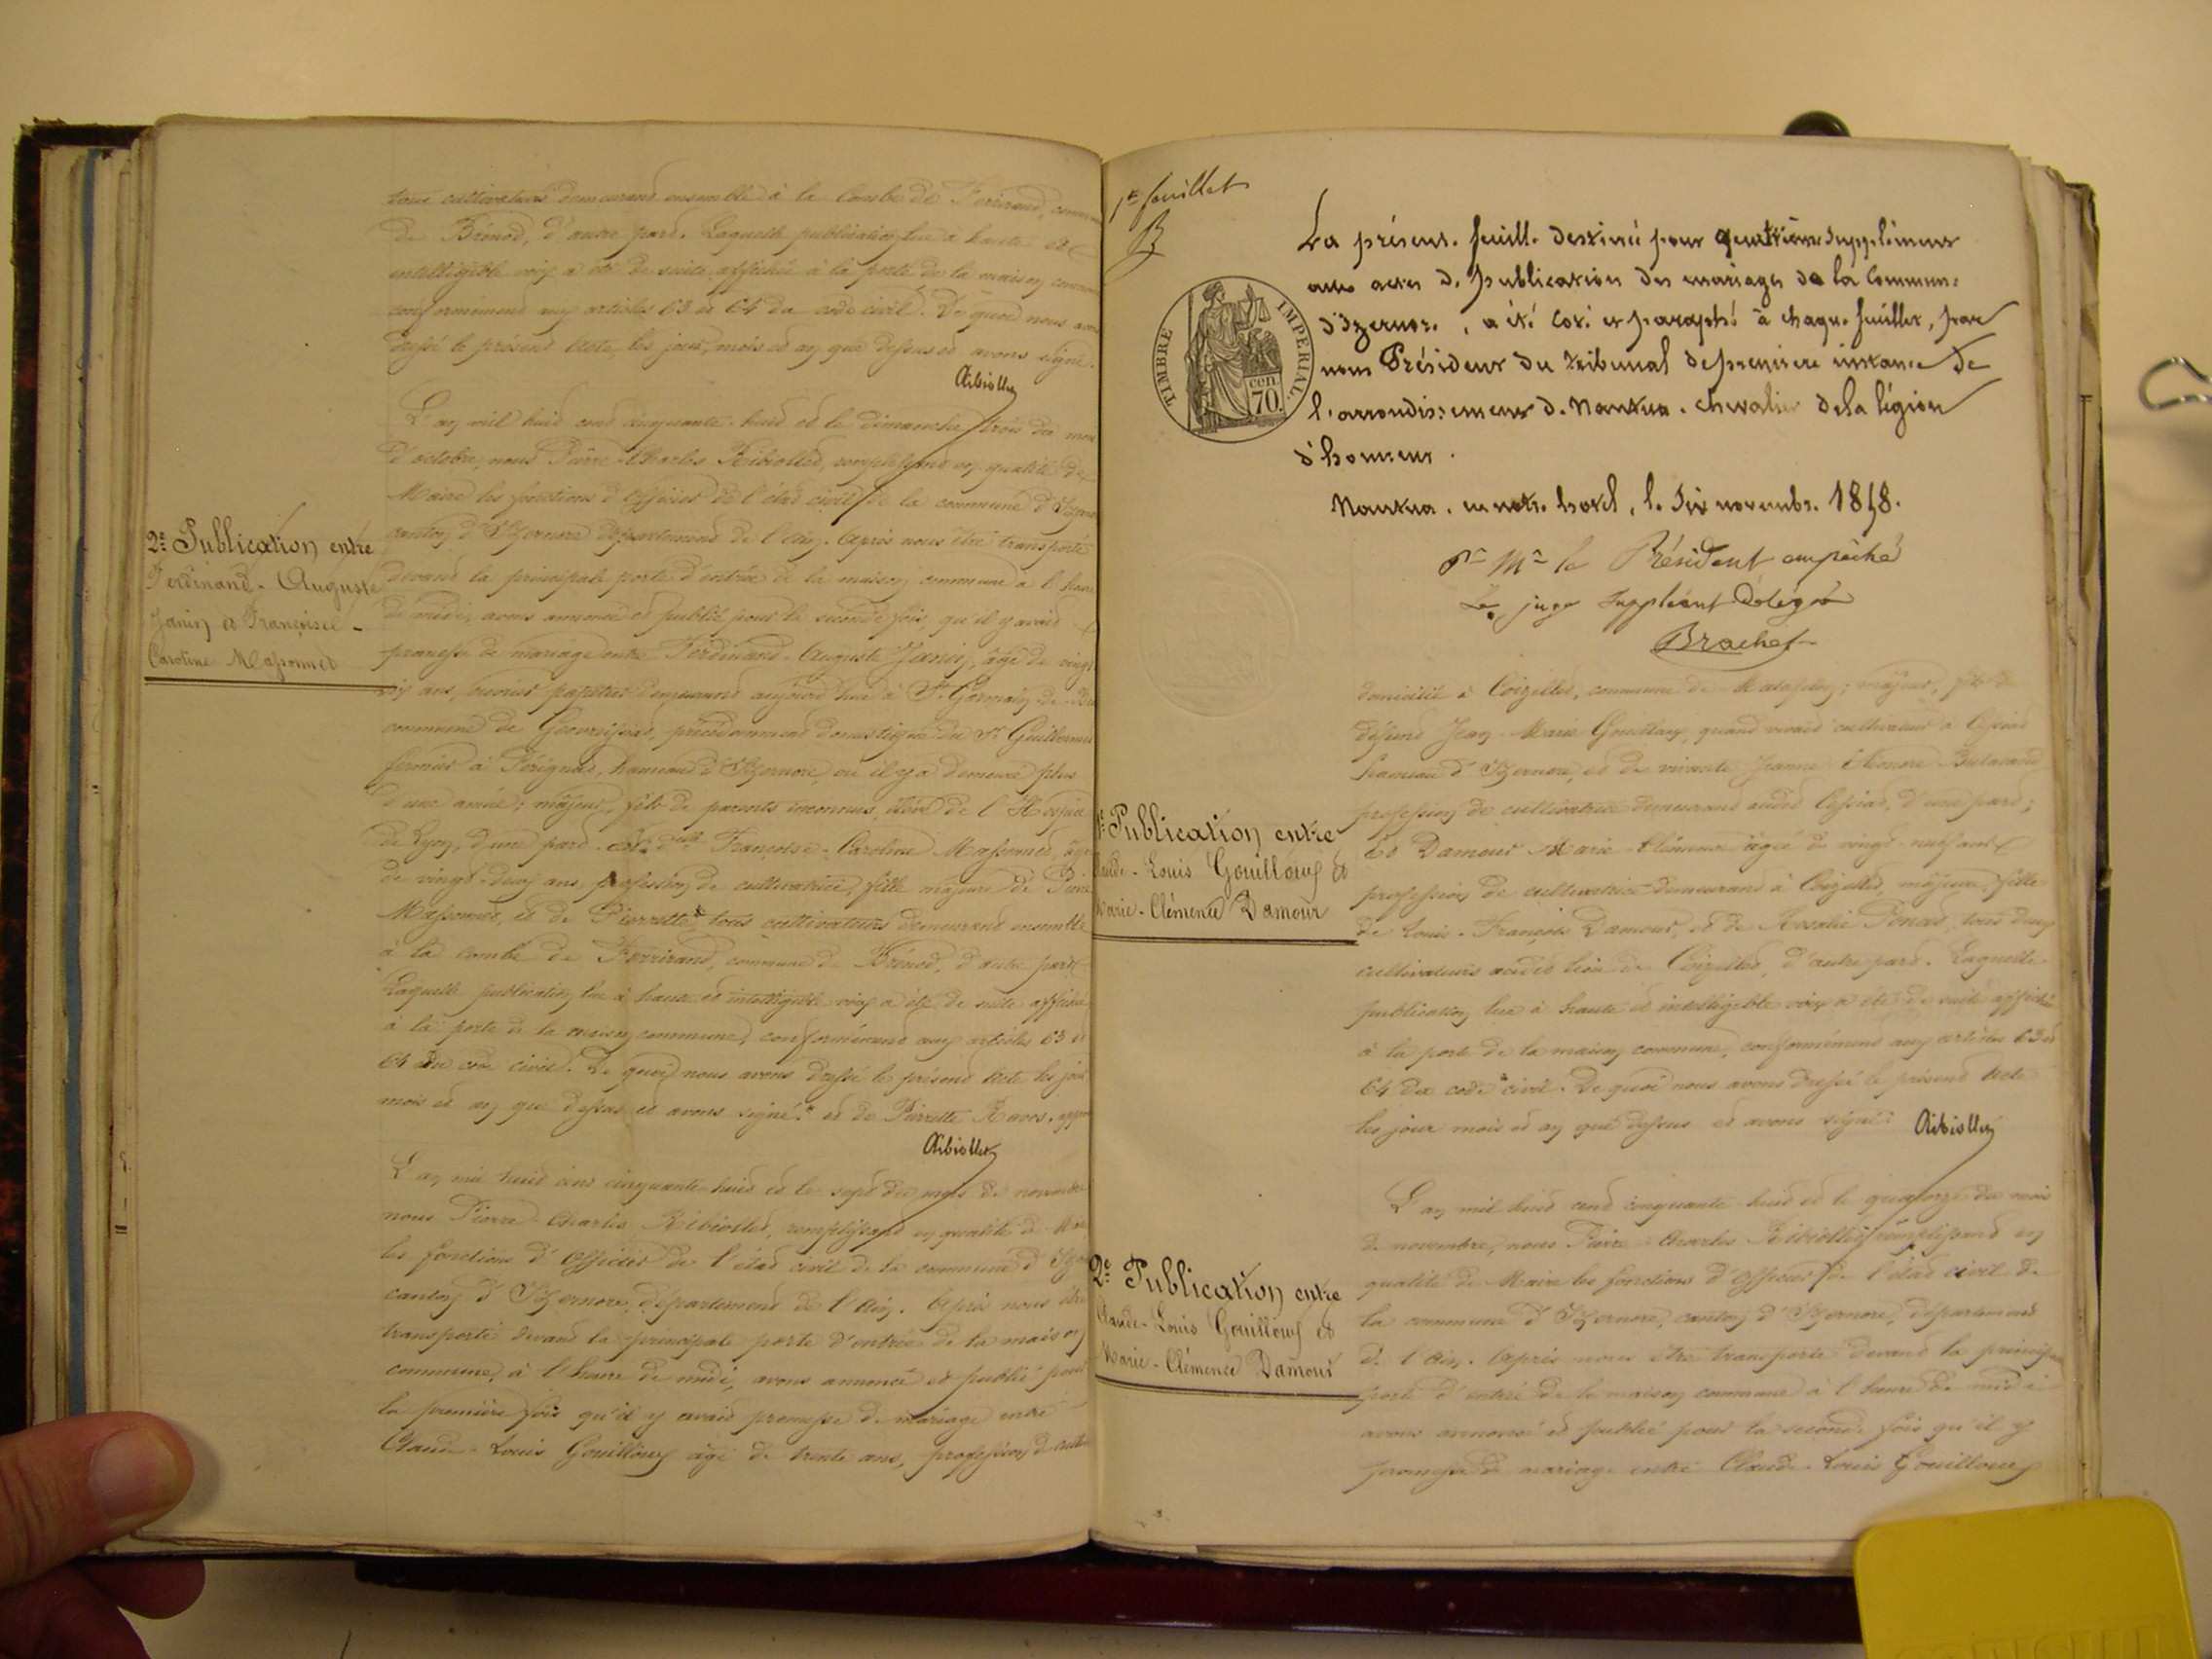 tous cultivateurs demeurant ensemble à la Combe de Ferrirand,
de Brénod, d'autre part. Laquelle publication lue à haute et
intelligible voix a été de suite affichée à la porte de la maison
conformément aux articles 63 et 64 du code civil. De quoi nous
dressé le présent acte, les jour, mois et an que dessus et avons signé.
Ribiollet
2e Publication entre
Ferdinand-Auguste
Janin et Françoise-
Caroline Massonnet
L'an mil huit cent cinquante-huit et le dimanche trois du mois
d'octobre, nous Pierre-Charles Ribiollet, remplissant en qualité de
Maire les fonctions d'officier de l'état civil de la commune d'
canton d'Izernore département de l'Ain. Après nous être transporté
devant la principale porte d'entrée de la maison commune à l'heure
de midi, avons annoncé et publié pour la seconde fois, qu'il y avait
promesse de mariage entre Ferdinand-Auguste Janin, âgé de vingt
ans, ouvrier papetier demeurant aujourd'hui à St Germain de
commune de Geovreissiat, précédemment domestique du Sr Guillermet
fermier à Perignat, hameau d'Izernore, où il y a demeuré plus
d'une année; majeur, fils de parents inconnus, élève de l'Hospice
de Lyon, d'une part. Françoise-Caroline Massonnet,
de vingt-deux ans, profession de cultivatrice, fille majeure de Pierre
Massonnet, et de Pierrette tous cultivateurs demeurant ensemble
à la combe de Ferrirand, commune de Brénod, d'autre part
Laquelle publication lue à haute et intelligible voix a été de suite affichée
à la porte de la maison commune, conformément aux articles 63 et
64 du code civil. De quoi nous avons dressé le présent acte les jour
mois et an que dessus et avons signé. et de Pierrette Ravos.
Ribiollet
L'an mil huit cent cinquante-huit et le sept du mois de novembre
nous Pierre-Charles Ribiollet, remplissant en qualité de
les fonctions d'officier de l'état civil de la commune d'
canton d'Izernore, département de l'Ain. Après nous être
transporté devant la principale porte d'entrée de la maison
commune, à l'heure de midi, avons annoncé et publié pour
la première fois qu'il y avait promesse de mariage entre
Claude-Louis Gouilloux âgé de trente ans, profession de
1er feuillet
B
TIMBRE IMPÉRIAL.
cen. 70.
La présent. feuill. destiné pour quatrième supplément
aux actes d. publication des mariages de la Commun.
d'Izernor. , a été coté et paraphé à chaqu. feuillet, par
nous Président du tribunal de première instance de
l'arrondissement d. Nantua. chevalier de la légion
d'honneur.
Nantua. en notr. hotel, l. Six novembr. 1858.
Pr Mr le Président empêché
Le juge suppléant Délégué
Brachet
domicilié à Coizelles, commune de Matafelon; majeur, fils de
défunt Jean-Marie Gouilloux, quand vivait cultivateur à Cessiat
hameau d'Izernore, et de vivante Jeanne
profession de cultivatrice demeurant audit Cessiat, d'une part;
1e Publication entre
Claude-Louis Gouilloux et
Marie-Clémence Damour
Et Damour Marie-Clémence âgée de vingt-neuf ans
profession de cultivatrice demeurant à Coizelles, majeure, fille
de Louis-François Damour, et de Rosalie tous deux
cultivateurs audit lieu de Coizelles, d'autre part. Laquelle
publication lue à haute et intelligible voix a été de suite affichée
à la porte de la maison commune, conformément aux articles 63 et
64 du code civil. De quoi nous avons dressé le présent acte
les jour mois et an que dessus et avons signé. Ribiollet
L'an mil huit cent cinquante huit et le quatorze du mois
de novembre, nous Pierre-Charles Ribiollet remplissant en
2e Publication entre
Claude-Louis Gouilloux et
Marie-Clémence Damour
qualité de Maire les fonctions d'officier de l'état civil de
la commune d'Izernore, canton d'Izernore, département
de l'Ain. Après nous être transporté devant la principale
porte d'entrée de la maison commune à l'heure de midi
avons annoncé et publié pour la seconde fois qu'il y
promesse de mariage entre Claude-Louis Gouilloux